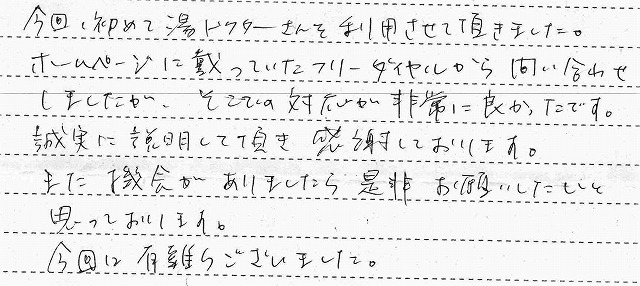 今回、初めて湯ドクターさんを利用させて頂きました。
ホームページに載っていたフリーダイヤルから問い合わせ
しましたが、そこでの対応が非常に良かったです。
誠実に説明して頂き感謝しております。
また機会がありましたら是非お願いしたいと
思っております。
今回は有難うございました。